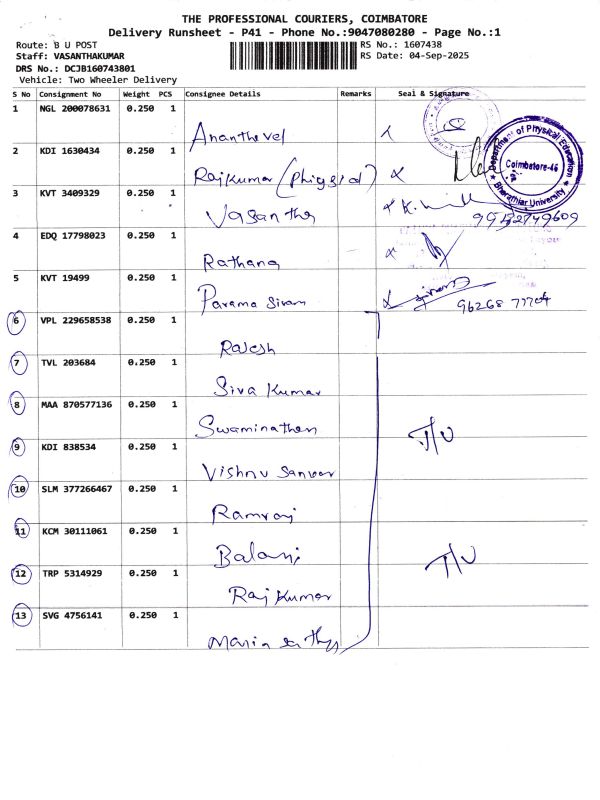 THE PROFESSIONAL COURIERS, COIMBATORE
Delivery Runsheet - P41 - Phone No.:9047080280 - Page No.:1
Route: B U POST
RS No.: 1607438
Staff: VASANTHAKUMAR
RS Date: 04-Sep-2025
DRS No.: DCJB160743801
Vehicle: Two Wheeler Delivery
S No Consignment No Weight PCS Consignee Details Remarks Seal & Signature
1 NGL 200078631 0.250 1
Ananthevel
2 KDI 1630434 0.250 1
Rajkumar
Department of Physical Education
Coimbatore-46
Bharathiar University
3 KVT 3409329 0.250 1
Vasantha
4 EDQ 17798023 0.250 1
Rathana
5 KVT 19499 0.250 1
Parama Sivam
6 VPL 229658538 0.250 1
Rajesh
7 TVL 203684 0.250 1
Siva Kumar
8 MAA 870577136 0.250 1
Swaminathan
T/U
9 KDI 838534 0.250 1
Vishnu
10 SLM 377266467 0.250 1
Ramraj
11 KCM 30111061 0.250 1
Balaji
T/U
12 TRP 5314929 0.250 1
Raj Kumar
13 SVG 4756141 0.250 1
Maria